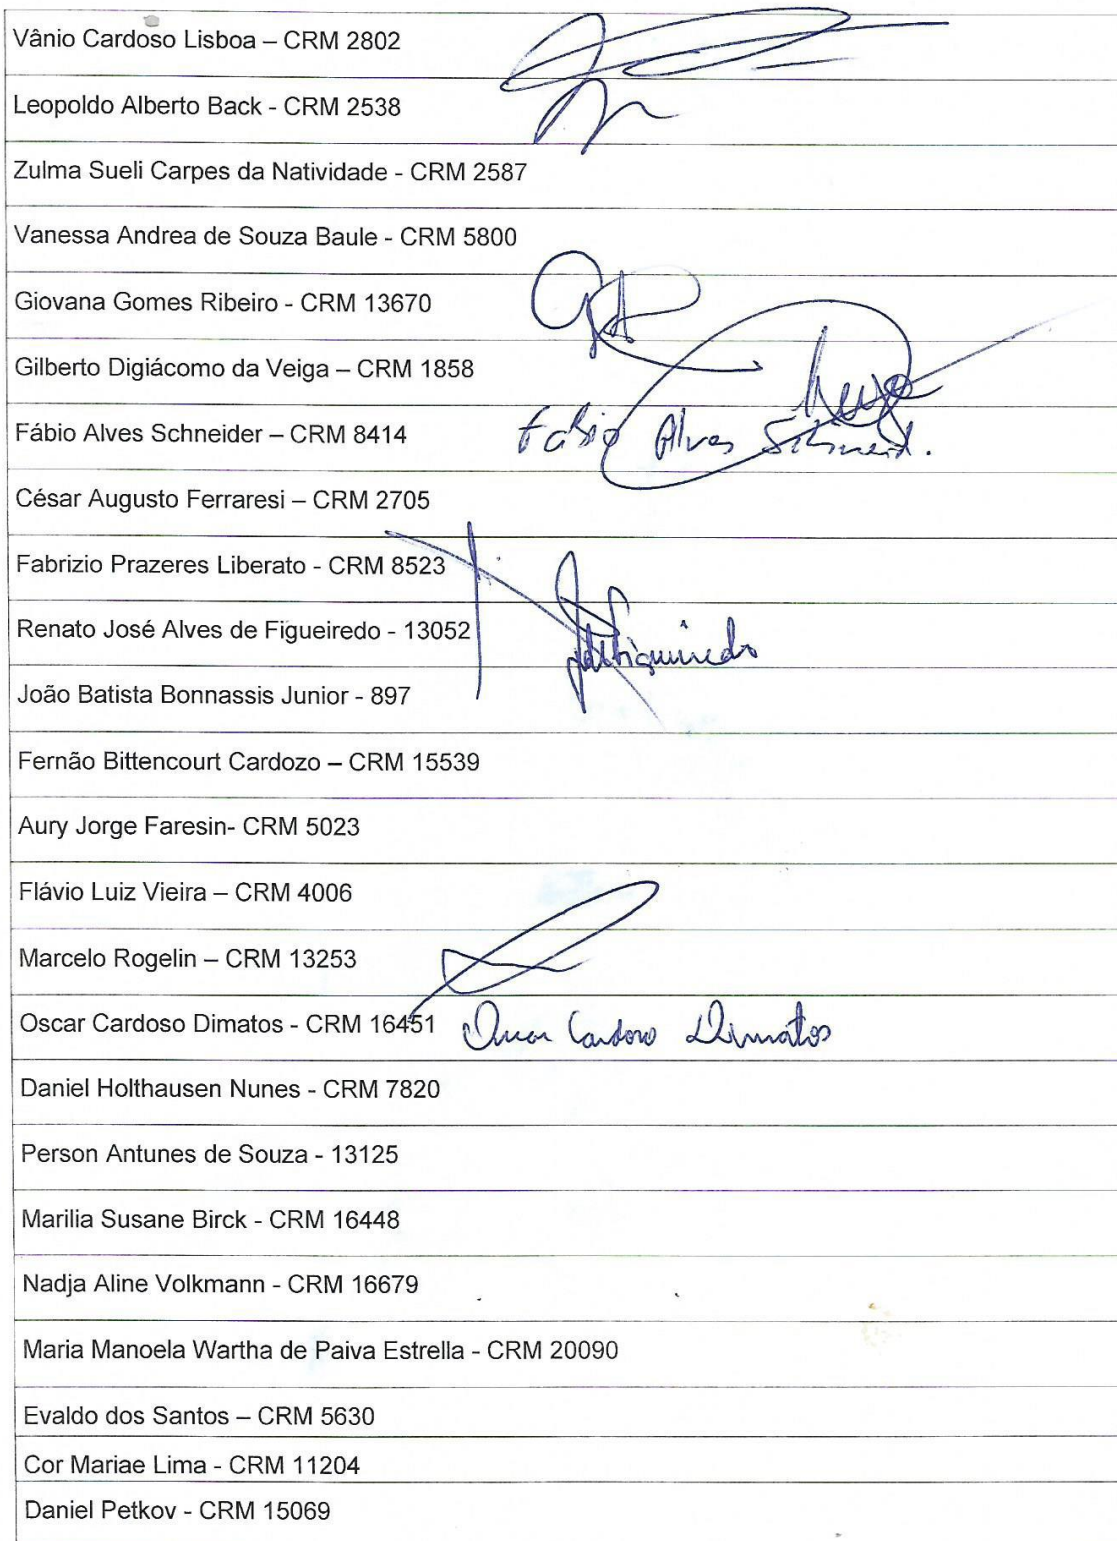 Vânio Cardoso Lisboa – CRM 2802
Leopoldo Alberto Back - CRM 2538
Zulma Sueli Carpes da Natividade - CRM 2587
Vanessa Andrea de Souza Baule - CRM 5800
Giovana Gomes Ribeiro - CRM 13670
Gilberto Digiácomo da Veiga – CRM 1858
Fábio Alves Schneider – CRM 8414 Fabio Alves
César Augusto Ferraresi – CRM 2705
Fabrizio Prazeres Liberato - CRM 8523
Renato José Alves de Figueiredo - 13052
João Batista Bonnassis Junior - 897
Fernão Bittencourt Cardozo – CRM 15539
Aury Jorge Faresin- CRM 5023
Flávio Luiz Vieira – CRM 4006
Marcelo Rogelin – CRM 13253
Oscar Cardoso Dimatos - CRM 16451 Oscar Cardoso Dimatos
Daniel Holthausen Nunes - CRM 7820
Person Antunes de Souza - 13125
Marilia Susane Birck - CRM 16448
Nadja Aline Volkmann - CRM 16679
Maria Manoela Wartha de Paiva Estrella - CRM 20090
Evaldo dos Santos – CRM 5630
Cor Mariae Lima - CRM 11204
Daniel Petkov - CRM 15069